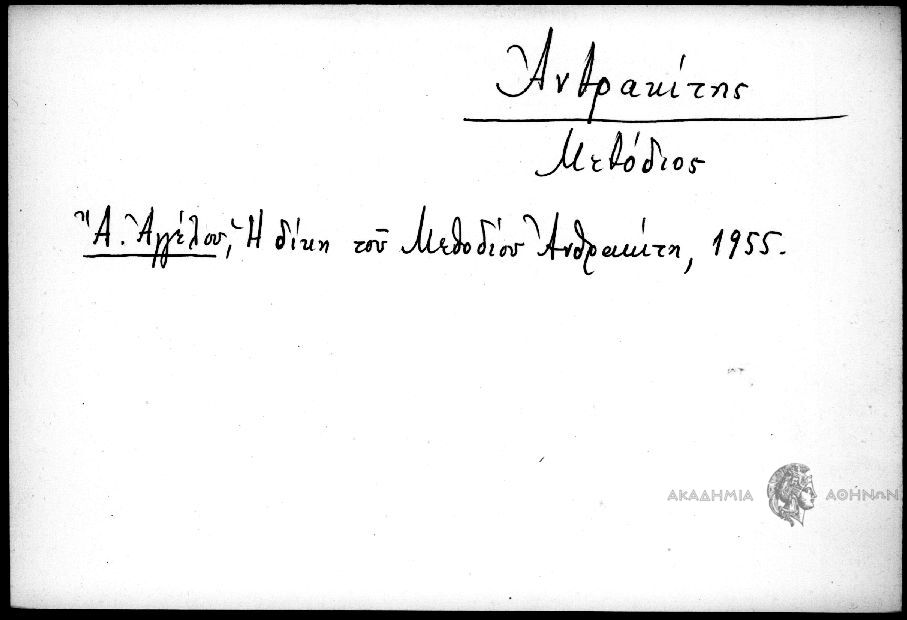 Ἀνθρακίτης
Μεθόδιος
Ἄ. Ἀγγέλου, Ἡ δίκη τοῦ Μεθοδίου Ἀνθρακίτη, 1955.
ΑΚΑΔΗΜΙΑ ΑΘΗΝΩΝ